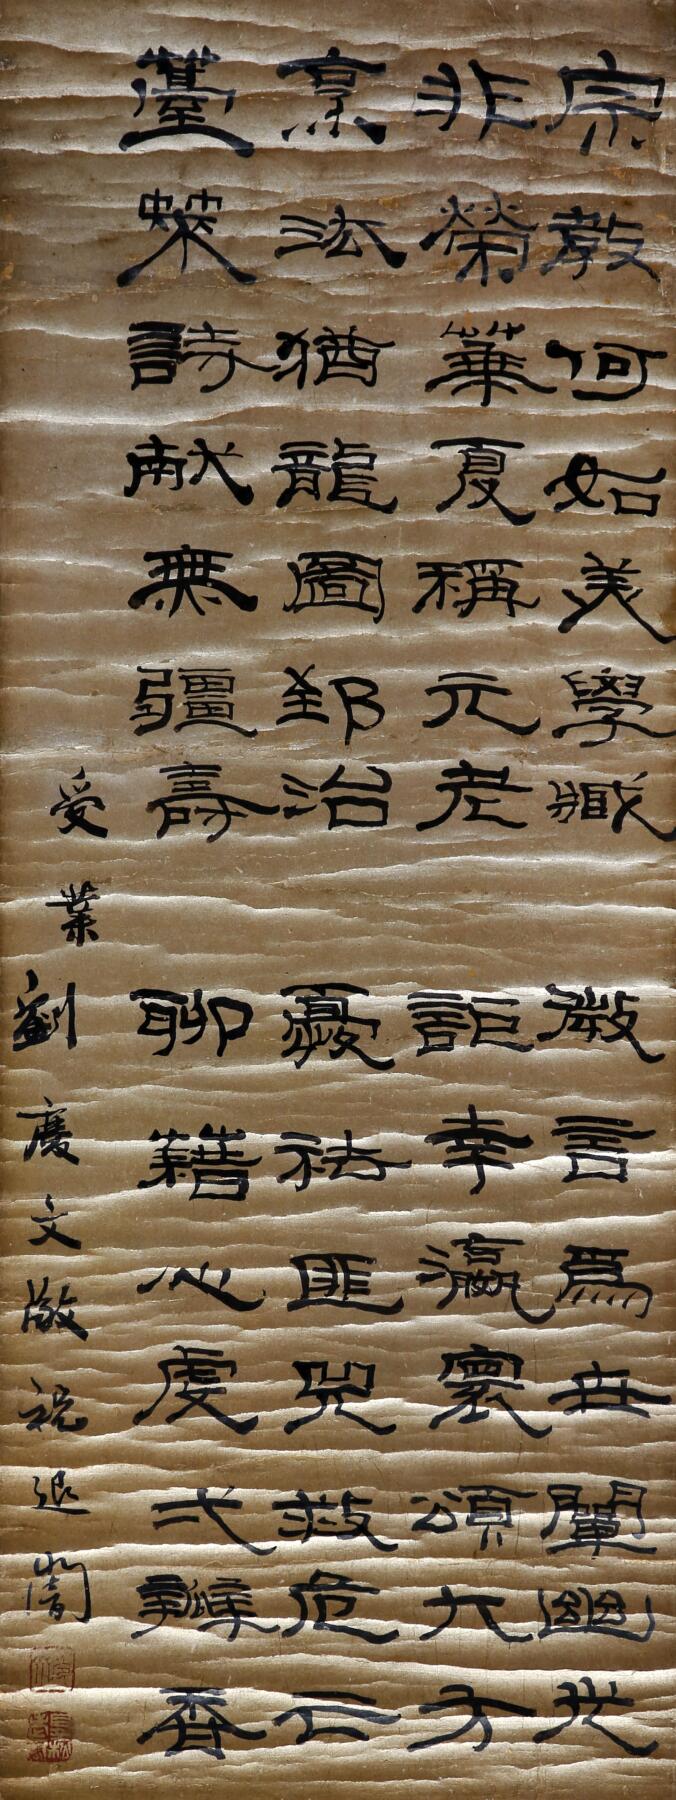 宗教何如美學臧 微言爲世闡幽光
非榮華夏稱元老 詎幸瀛寰頌大方
烹法猶龍圖郅治 憂祛匪兕救危亡
臺萊詩献無疆壽 聊藉心虔弌瓣香
受業劉慶文敬祝退闇